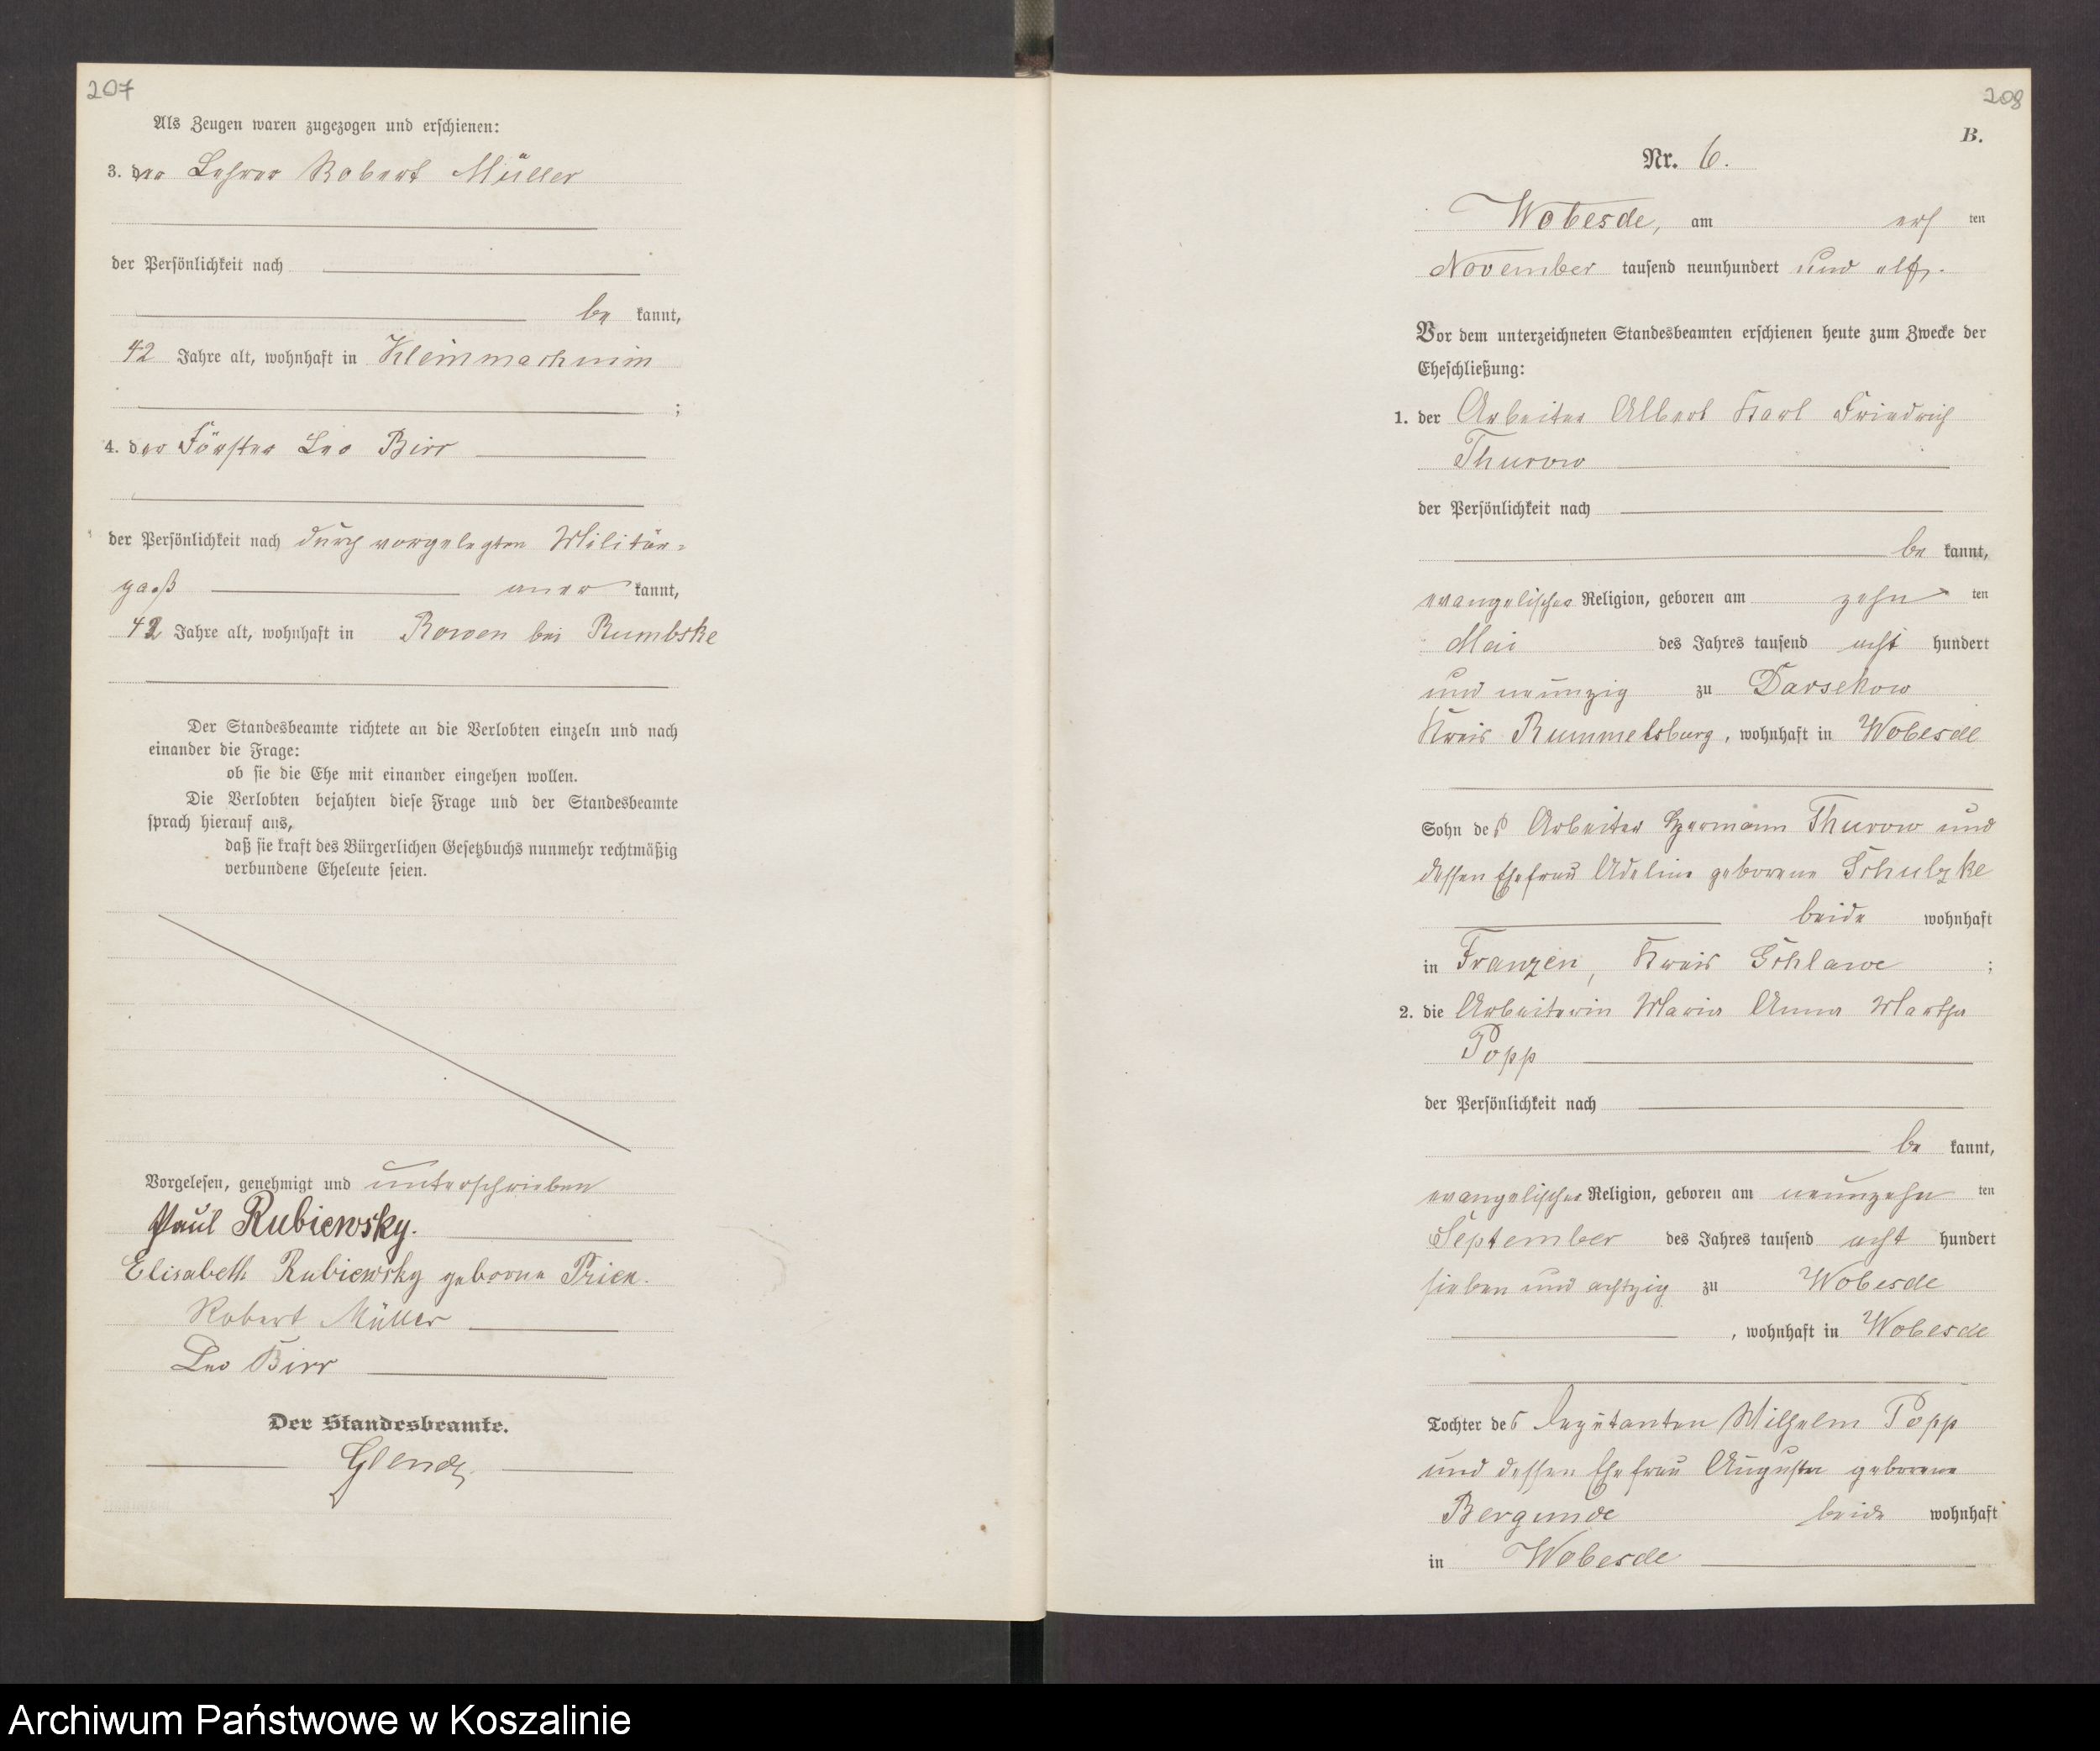 207
Als Zeugen waren zugezogen und erschienen:
3. der Lehrer Robert Müller
der Persönlichkeit nach
be kannt,
42 Jahre alt, wohnhaft in Kleinmachmin
;
4. der Förster Leo Birr
der Persönlichkeit nach durch vorgelegten Militär=
paß aner kannt,
42 Jahre alt, wohnhaft in Rowen bei Rumbske
Der Standesbeamte richtete an die Verlobten einzeln und nach
einander die Frage:
ob sie die Ehe mit einander eingehen wollen.
Die Verlobten bejahten diese Frage und der Standesbeamte
sprach hierauf aus,
daß sie kraft des Bürgerlichen Gesetzbuchs nunmehr rechtmäßig
verbundene Eheleute seien.
Vorgelesen, genehmigt und unterschrieben
Paul Rubiewsky.
Elisabeth Rubiewsky geborne Prien.
Robert Müller
Leo Birr
Der Standesbeamte.
208
B.
Nr. 6.
Wobesde, am ers ten
November tausend neunhundert und elf.
Vor dem unterzeichneten Standesbeamten erschienen heute zum Zwecke der
Eheschließung:
1. der Arbeiter Albert Karl Friedrich
Thurow
der Persönlichkeit nach
be kannt,
evangelischer Religion, geboren am zehn ten
Mai des Jahres tausend acht hundert
und neunzig zu Darsekow
Kreis Rummelsburg, wohnhaft in Wobesde
Sohn des Arbeiter Hermann Thurow und
dessen Ehefrau Adeline geborene Schulzke
beide wohnhaft
in Franzen, Kreis Schlawe ;
2. die Arbeiterin Maria Anna Martha
Popp
der Persönlichkeit nach
be kannt,
evangelischer Religion, geboren am neunzehn ten
September des Jahres tausend acht hundert
sieben und achtzig zu Wobesde
, wohnhaft in Wobesde
Tochter des Deputanten Wilhelm Popp
und dessen Ehefrau Auguste geborene
Bergunde beide wohnhaft
in Wobesde
Archiwum Państwowe w Koszalinie